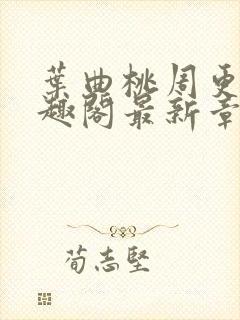 葉曲桃周更
趣閣最新章
荀志堅